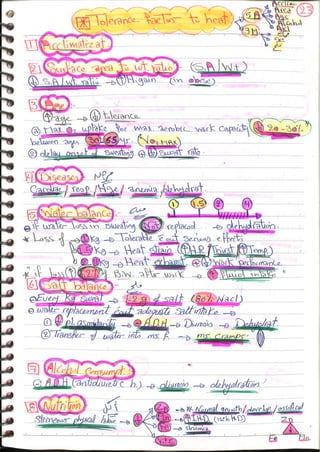 Tolerance Factors to heat
23
1 Acclimatizat.
2 Surface area to wt. ratio (S.A/wt)
↓ S.A/wt ratio → ↑ H. gain (in obese)
3 Age
↑ age → ↓ tolerance
Max O2 uptake for max aerobic work capacity ↓ 20-30%
between ages 30, 65 yr. (VO2 max)
delay onset of sweating ↓ sweat rate.
4 Diseases
Cardiac / resp. / Hge / anemia / dehydrat.
5 Water balance
1 1.5 2 4
if water loss in sweating not replaced → dehydration.
* Loss of 1 Kg → Tolerable out serious effects
Kg → Heat strain (↑HR, ↑ Temp)
Kg → Heat exhaust & ↓ Work performance
* if loss B.W. after work → ↑ Fluid intake
6 Salt balance
Every Kg sweat → 1-2 g of salt (80% NaCl)
water replacement adequate salt intake →
① ↓ plasma → ADH → Diuresis → Dehydrat.
② Transfer of water into ms. → ms. cramps
7 Alcohol Consumpt.
ADH (antidiuretic h.) → diuresis → dehydration
8 Nutrition
Strenuous physical labor
Normal growth / develop /
IHD (isch HD)
anemia
Zn
Fe